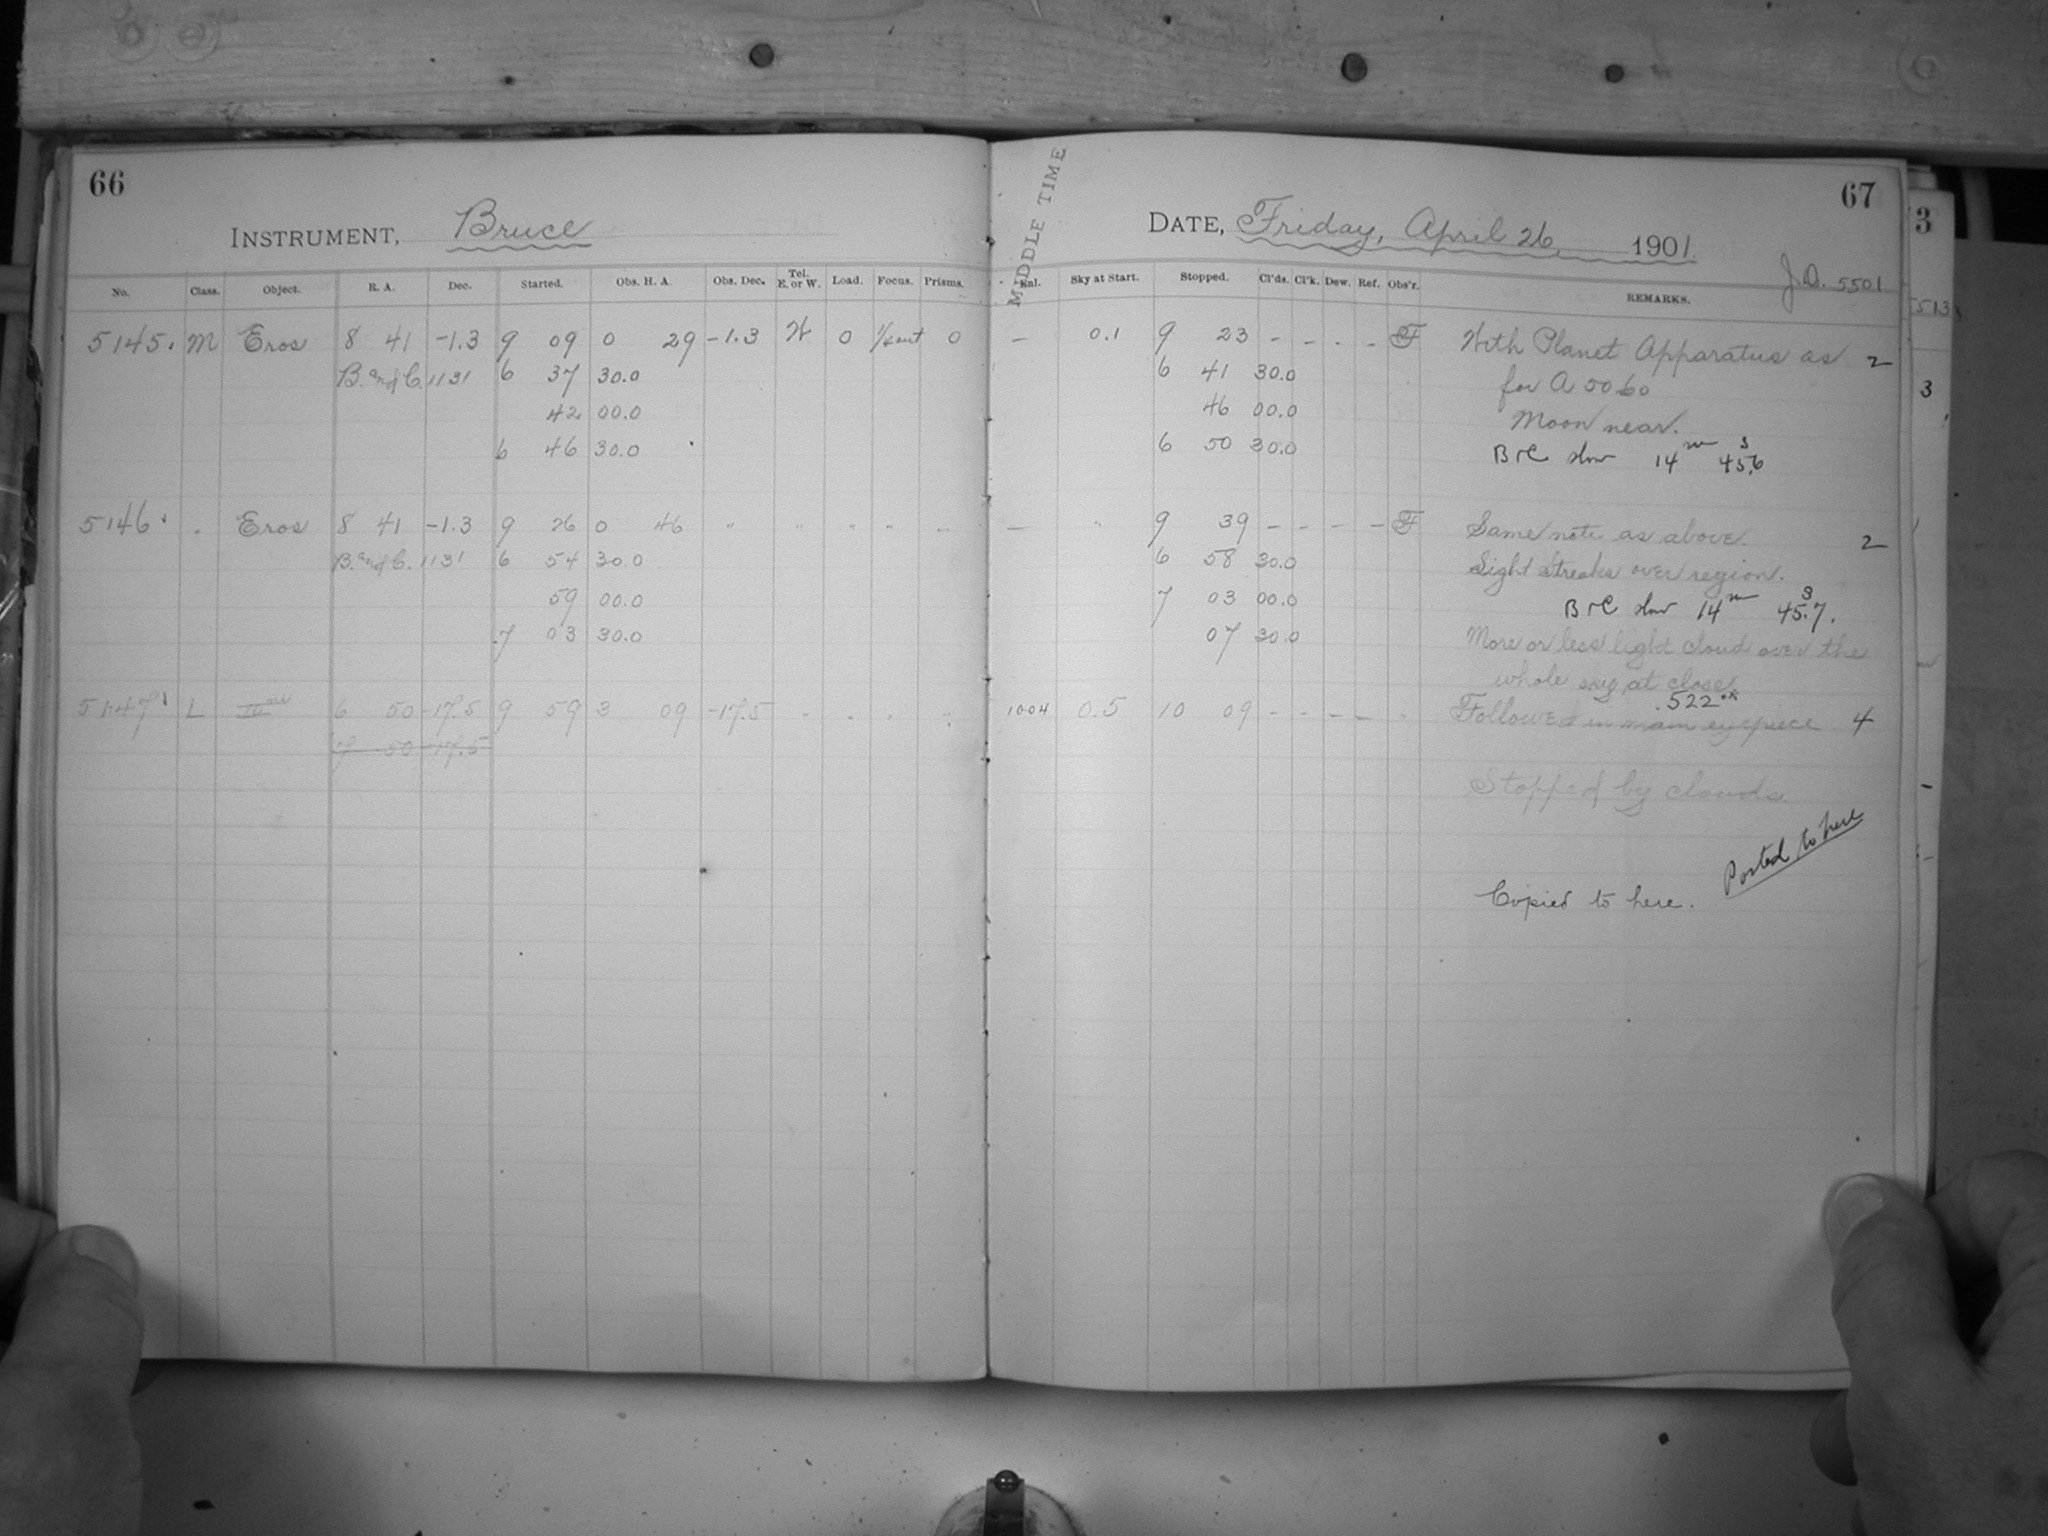 66
INSTRUMENT, Bruce
No. Class. Object. R. A. Dec. Started. Obs. H. A. Obs. Dec. Tel. E. or W. Load. Focus. Prisms.
5145. M Eros 8 41 -1.3 9 09 0 29 -1.3 W 0 0
B. and C. 1131 6 37 30.0
42 00.0
6 46 30.0
5146 Eros 8 41 -1.3 9 26 0 46 " " " " -
B. and C. 1131 6 54 30.0
59 00.0
7 03 30.0
5147 L 10m 6 50 -17.5 9 59 3 09 -17.5
7 50 -17.5
67
MIDDLE TIME
DATE, Friday, April 26, 1901.
J.D. 5501
Enl. Sky at Start. Stopped. Cl'ds. Cl'k. Dew. Ref. Obs'r. REMARKS.
- 0.1 9 23 - - - - F With Planet Apparatus as 2
6 41 30.0 for A 5060
46 00.0 Moon near.
6 50 30.0 B & C slow 14m 45.6s
- " 9 39 - - - - F Same note as above. 2
6 58 30.0 Light Streaks over region.
7 03 00.0 B & C slow 14m 45.7s.
07 30.0 More or less light cloud over the
whole sky at close
.522
1004 0.5 10 09 - - - - " Followed in main eyepiece 4
Stopped by clouds.
Posted to here
Copied to here.
3
513
3